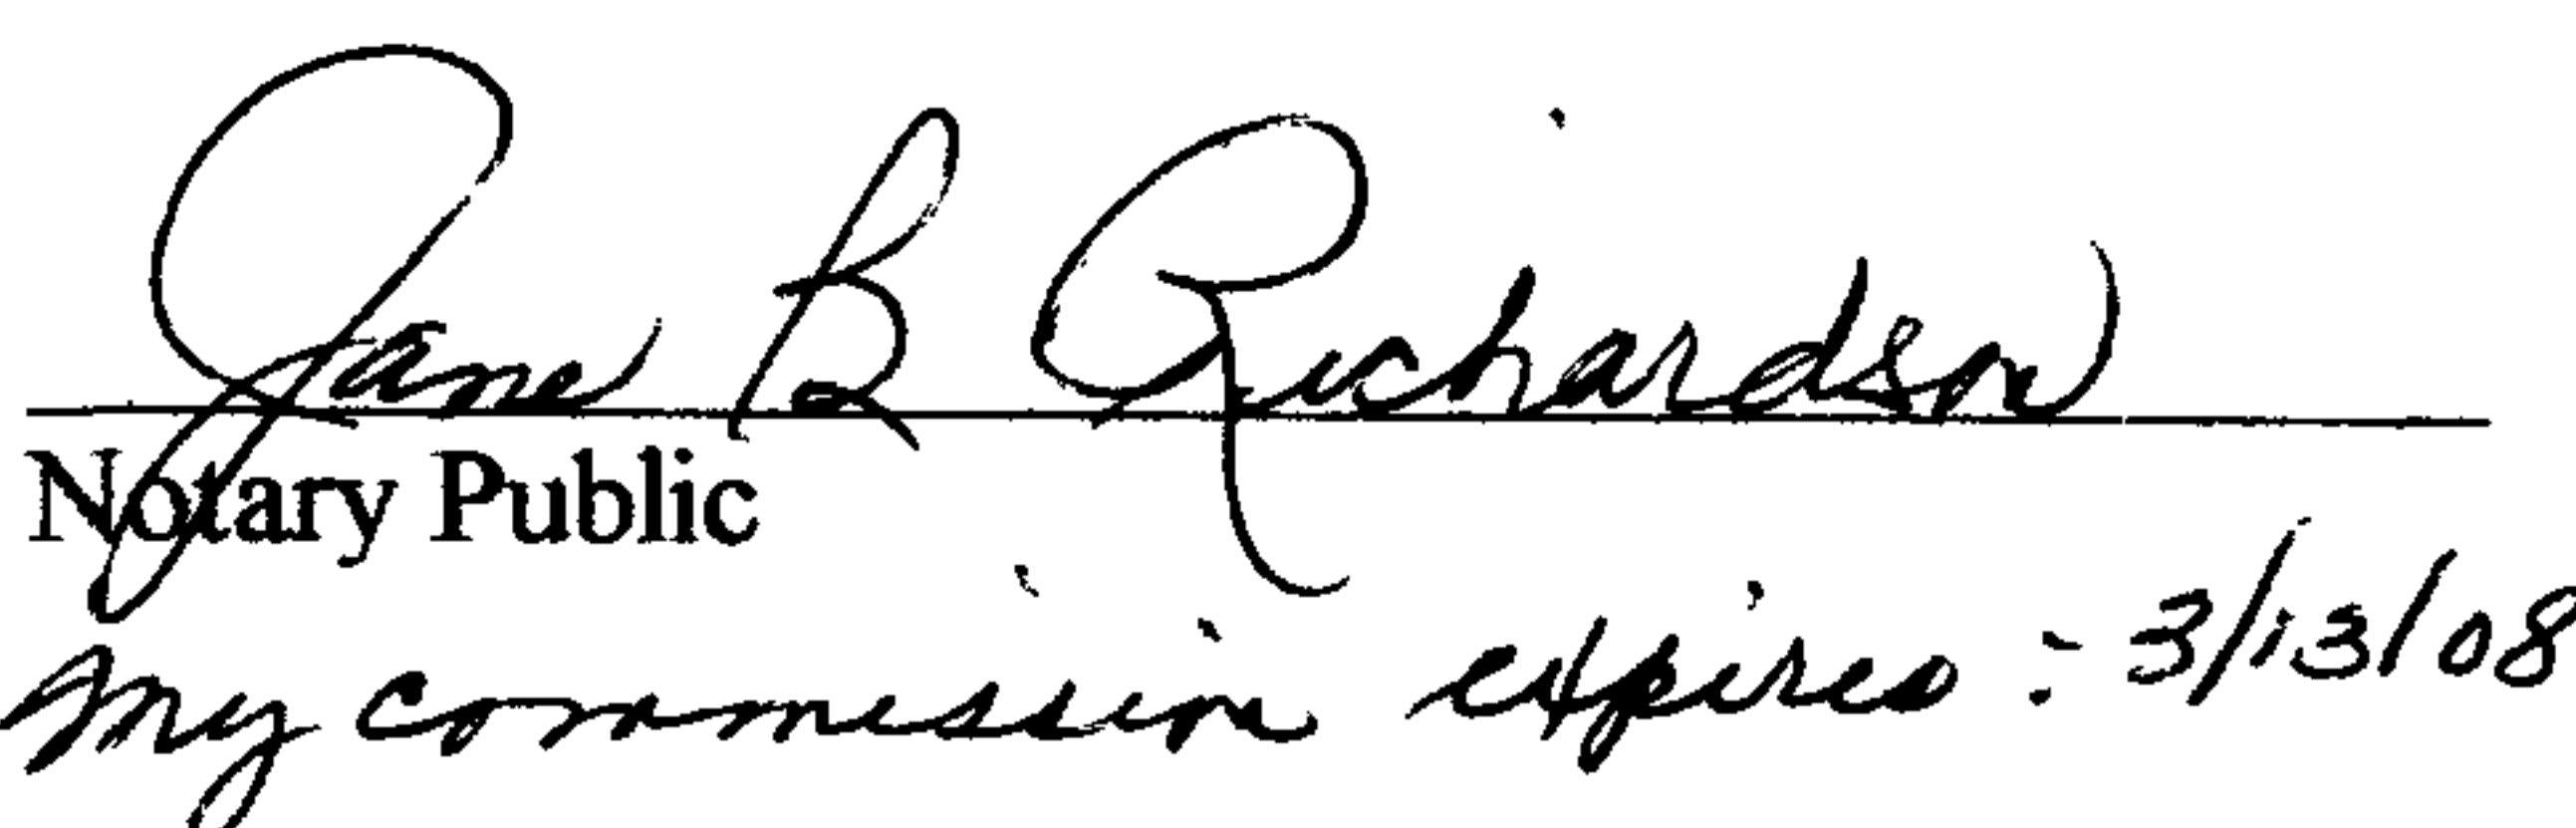 Jane B Richardson
Notary Public
My commission expires: 3/13/08